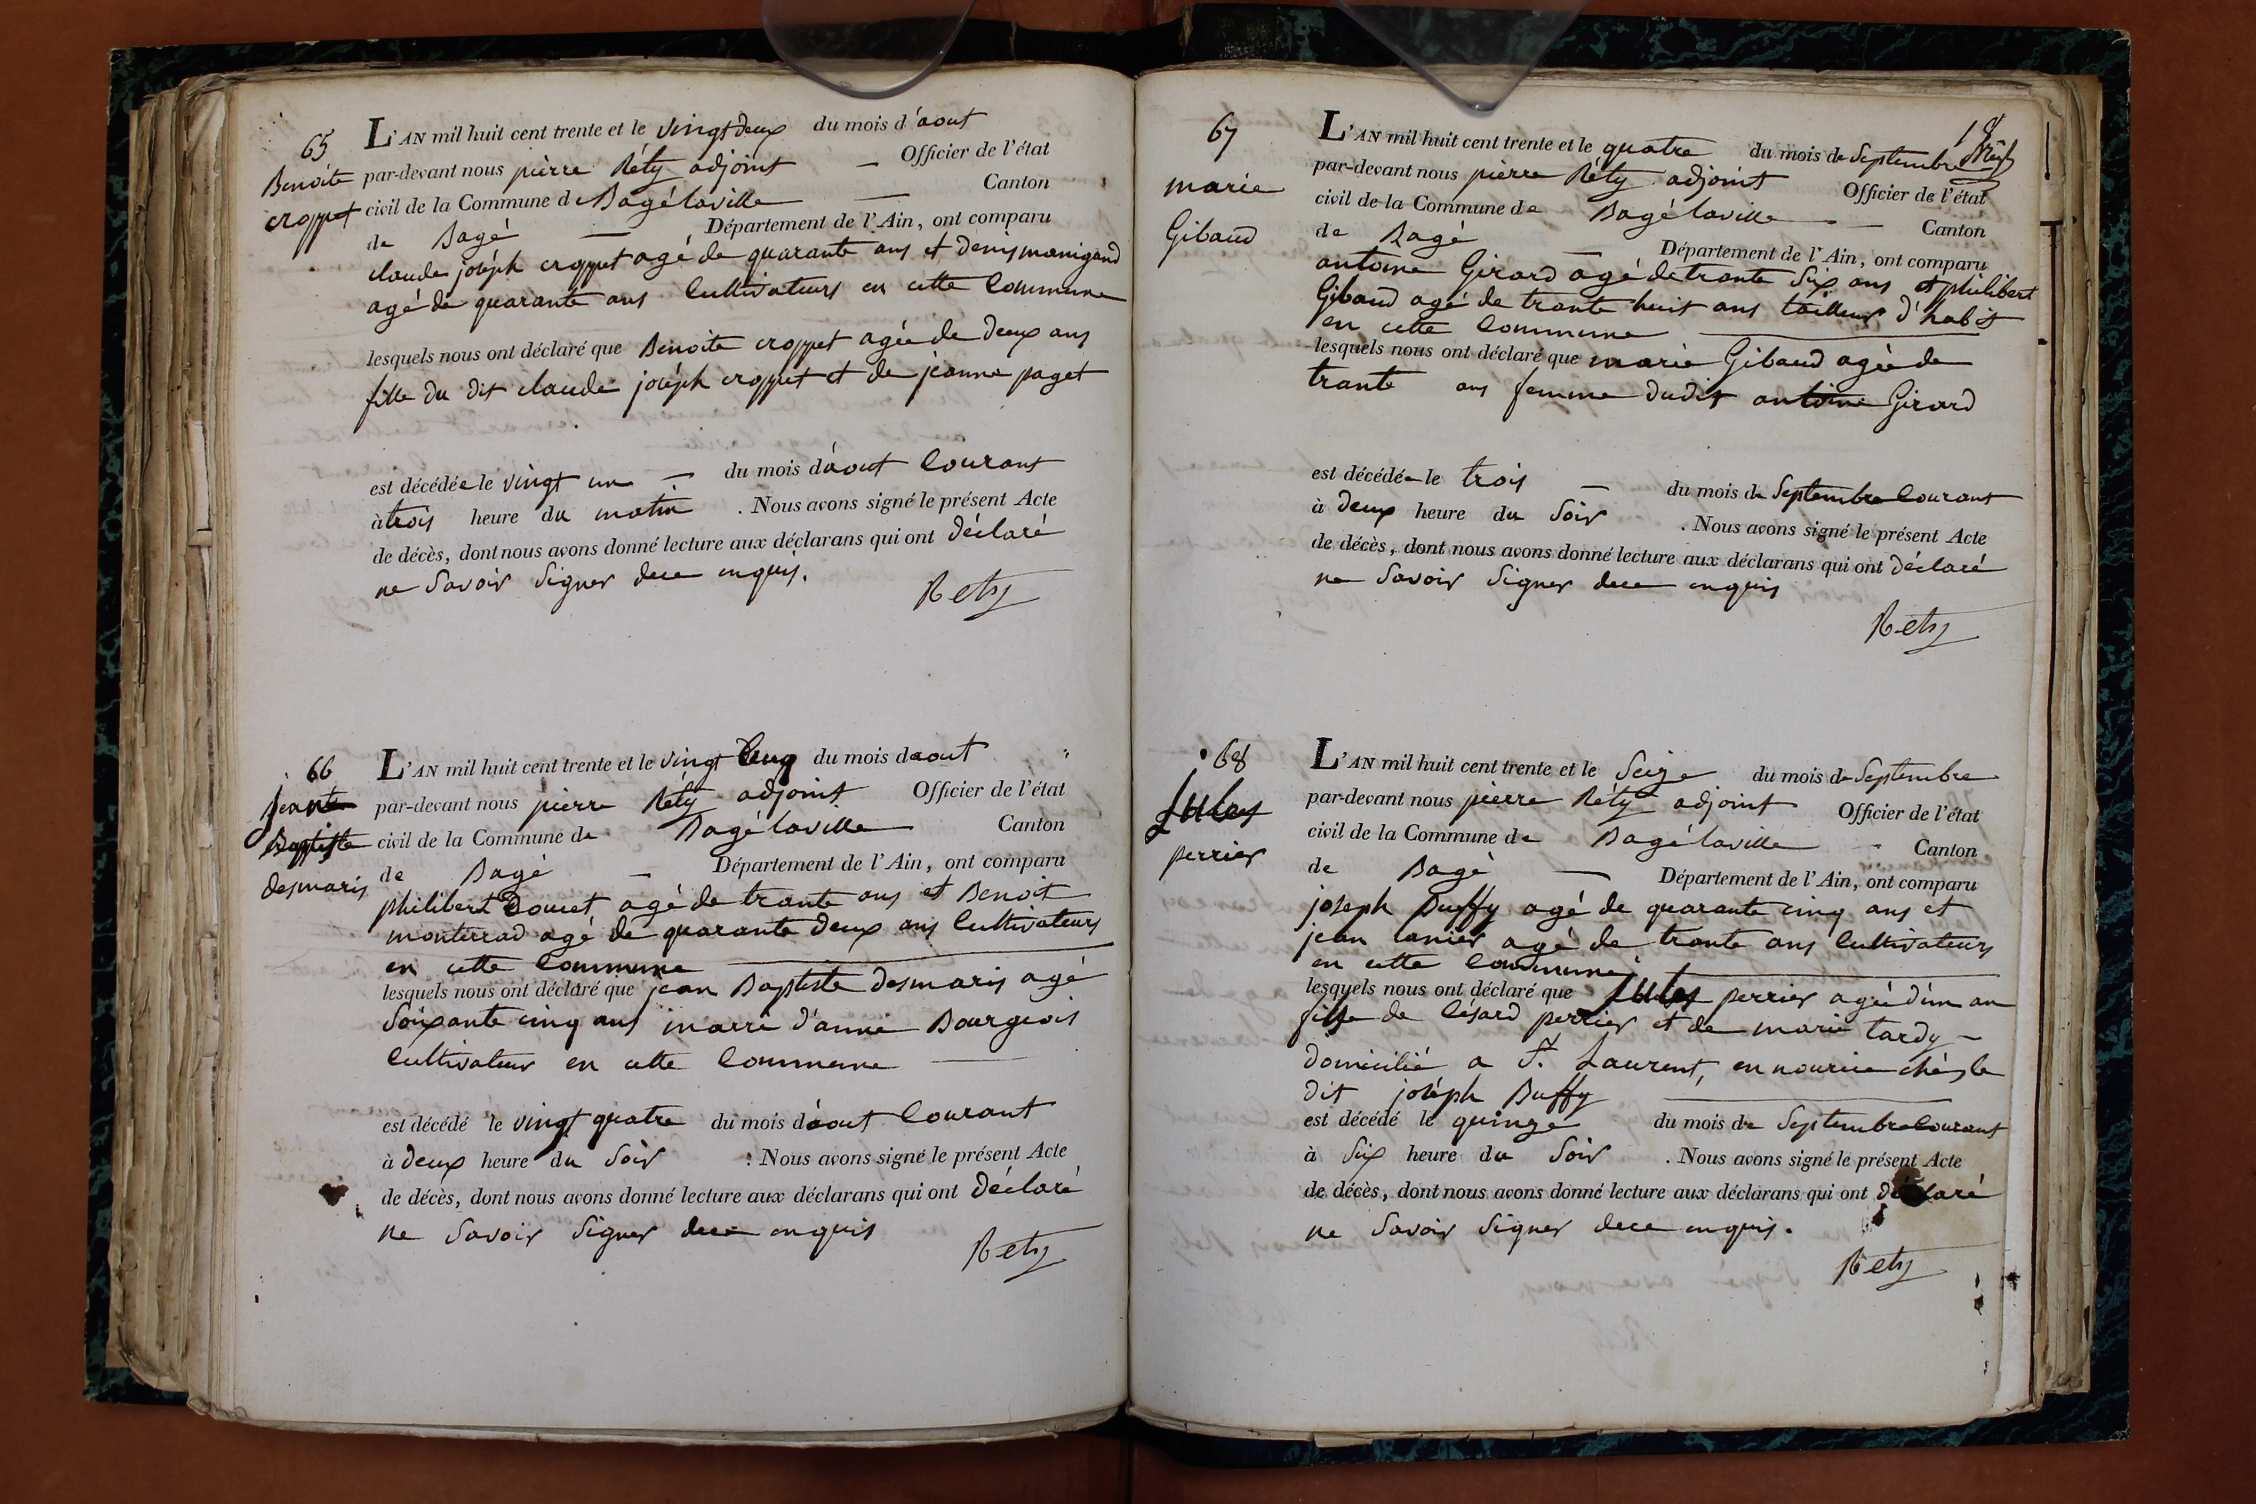 65
Benoite
croppet
L'AN mil huit cent trente et le vingt deux du mois d'aout
par-devant nous pierre Réty adjoint — Officier de l'état
civil de la Commune de Bagélaville — Canton
de Bagé — Département de l'Ain, ont comparu
claude joséph croppet agé de quarante ans et denis manigand
agé de quarante ans Cultivateurs en cette Commune
lesquels nous ont déclaré que Benoite croppet agée de deux ans
fille du dit claude joséph croppet et de jeanne paget
est décédée le vingt un — du mois d'aout Courant
à trois heure du matin . Nous avons signé le présent Acte
de décès, dont nous avons donné lecture aux déclarans qui ont déclaré
ne Savoir Signer dece enquis.
Rety
66
Baptiste
desmaris
L'AN mil huit cent trente et le vingt Cinq du mois daout
par-devant nous pierre Réty adjoint Officier de l'état
civil de la Commune de Bagélaville Canton
de Bagé — Département de l'Ain, ont comparu
philibert Doucet agé de trante ans et Benoit
monterrad agé de quarante deux ans Cultivateurs
en cette Commune
lesquels nous ont déclaré que jean Baptiste desmaris agé
Soixante cinq ans marré d'anne Bourgeois
Cultivateur en cette Commune
est décédé le vingt quatre du mois d'aout Courant
à deux heure du Soir . Nous avons signé le présent Acte
de décès, dont nous avons donné lecture aux déclarans qui ont déclaré
ne Savoir Signer dece enquis
Rety
18
67
marie
Gibaud
L'AN mil huit cent trente et le quatre du mois de Septembre
par-devant nous pierre Réty adjoint Officier de l'état
civil de la Commune de Bagélaville — Canton
de Bagé — Département de l'Ain, ont comparu
antoine Girard agé de trante Six ans et philibert
Gibaud agé de trante huit ans tailleur d'habit
en cette Commune
lesquels nous ont déclaré que marie Gibaud agée de
trante ans femme dudit antoine Girard
est décédée le trois — du mois de Septembre Courant
à deux heure du Soir . Nous avons signé le présent Acte
de décès, dont nous avons donné lecture aux déclarans qui ont déclaré
ne Savoir Signer dece enquis
Rety
68
Jules
perrier
L'AN mil huit cent trente et le Seize du mois de Septembre
par-devant nous pierre Réty adjoint Officier de l'état
civil de la Commune de Bagélaville Canton
de Bagé — Département de l'Ain, ont comparu
joseph Buffy agé de quarante cinq ans et
jean lanier agé de trante ans Cultivateurs
en cette Commune
lesquels nous ont déclaré que Jules perrier agé d'un an
de Césard perrier et de marie tardy —
domicilié a St. Laurent, en nourice chés le
dit joséph Buffy
est décédé le quinze du mois de Septembre Courant
à Six heure du Soir . Nous avons signé le présent Acte
de décès, dont nous avons donné lecture aux déclarans qui ont déclaré
ne Savoir Signer dece enquis.
Rety